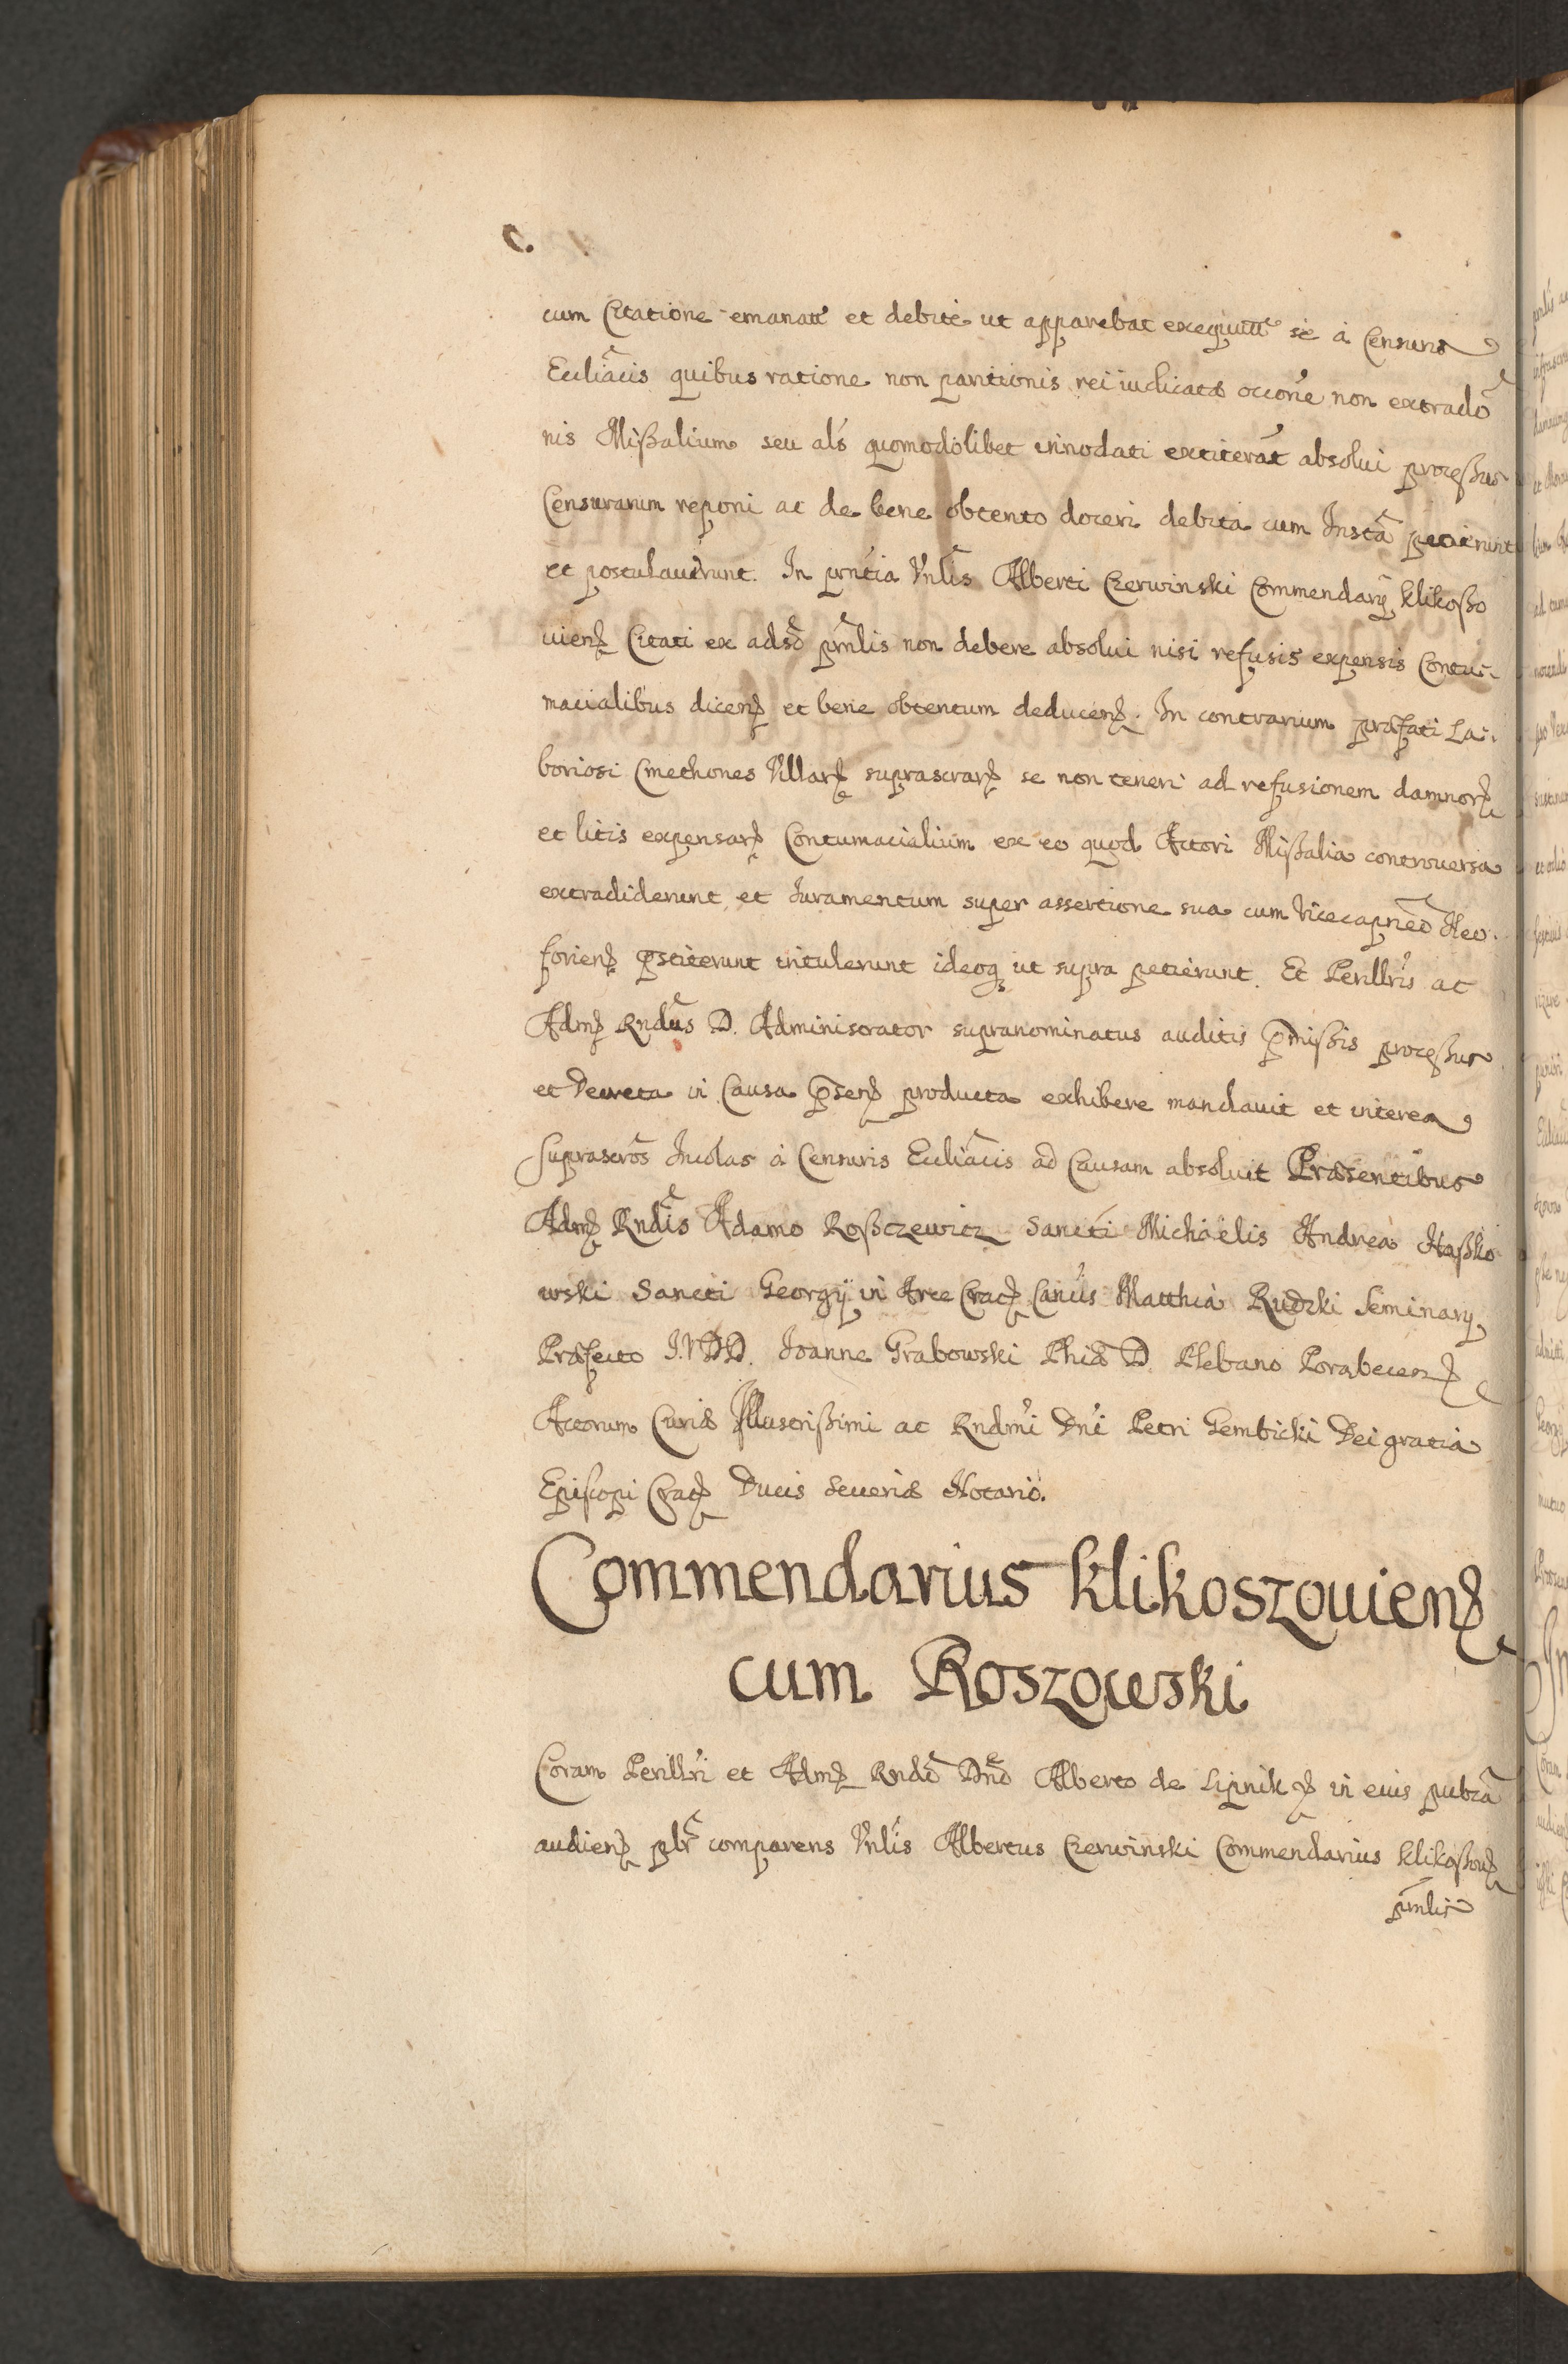 C.
cum Citatione emanatt et debite ut apparebat exequutt se à Censuris
Eccliãcis quibus ratione non paritionis rei iudicatæ occõne non extradõ
nis Mißalium seu als quomodolibet innodati extiterãt absolui proceßus
Censurarum reponi ac de bene obtento doceri debita cum Instã petierunt
et postulauerunt. In pñtia Vnlis Alberti Czerwinski Commendarij Klikoßo
uien Citati ex adsõ pñlis non debere absolui nisi refusis expensis Contu-
macialibus dicen et bene obtentum deducen. In contrarium præfati La-
boriosi Cmethones Villar suprascrar se non teneri ad refusionem damnor
et litis expensar Contumacialium ex eo quod Actori Mißalia controuersa
extradiderunt et Iuramentum super assertione sua cum Vicecapneõ Neo-
forien p̃stiterunt intulerunt ideoq ut supra petierunt. Et Perillris ac
Adm Rndus D. Administrator supranominatus auditis p̃mißis proceßus
et Decreta in Causa p̃sen producta exhibere mandauit et interea
suprascros Incolas à Censuris Eccliãcis ad Causam absoluit Præsentibus
Adm Rndis Adamo Roßczewicz Sancti Michaelis Andrea Naßko
wski Sancti Georgij in Arce Crac Canĩs Matthia Rudzki Seminarij
Præfecto I.V.D.D. Ioanne Grabowski Phiæ D. Plebano Porabecen
Actorum Curiæ Illustrißimi ac Rndmi Dni Petri Gembicki Dei gratia
Episcopi Crac Ducis Seueriæ Notario.
Commendarius Klikoszouien
cum Roszowski
Coram Perillri et Adm Rndõ Dnõ Alberto de Lipnik in eius publcã
audien plr comparens Vnlis Albertus Czerwinski Commendarius Klikoßou
pñlis